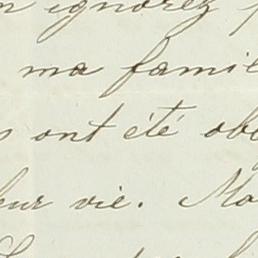 n ignorez p
ma famil
s ont été obl
leur vie. Ma